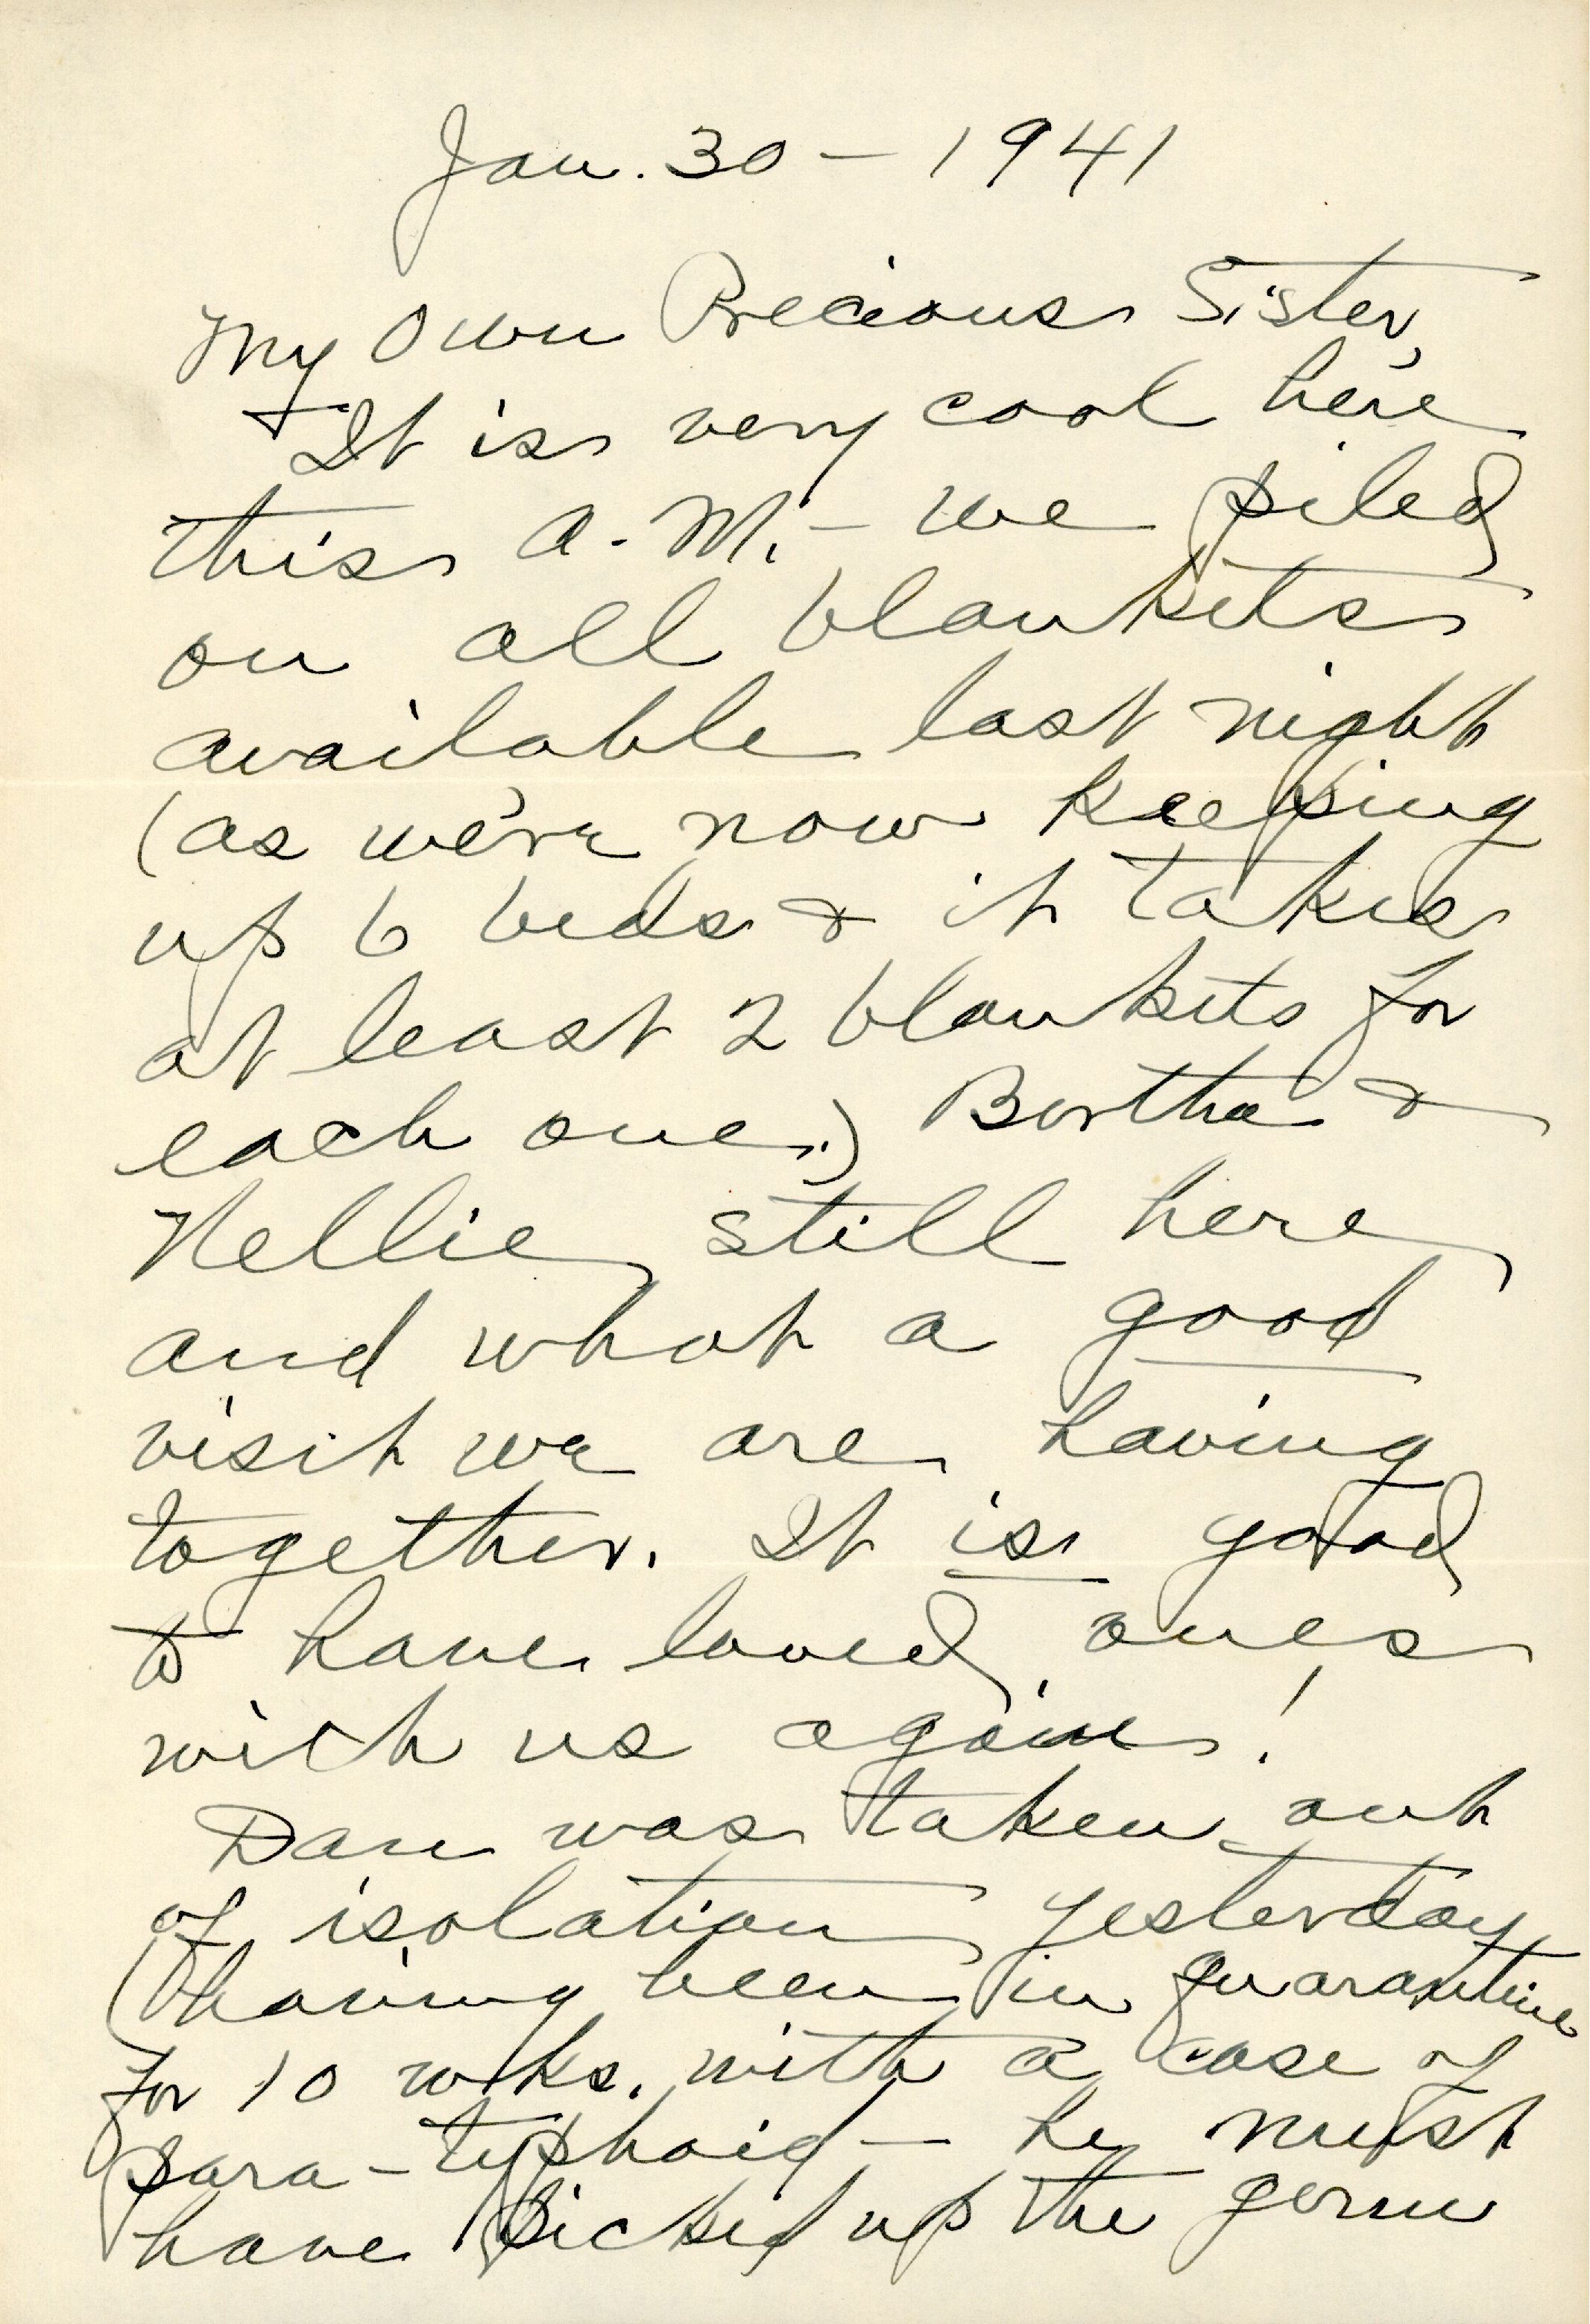 Jan. 30 - 1941
My Own Precious Sister,
It is very cool here
this A.M. - we piled
on all blankets
available last night
(as we're now keeping
up 6 beds & it takes
at least 2 blankets for
each one.) Bertha &
Nellie still here,
and what a good
visit we are having
together. It is good
to have loved ones
with us again!
Dan was taken out
of isolation yesterday
(having been in quarantine
for 10 wks. with a case of
para-typhoid - he must
have picked up the germ